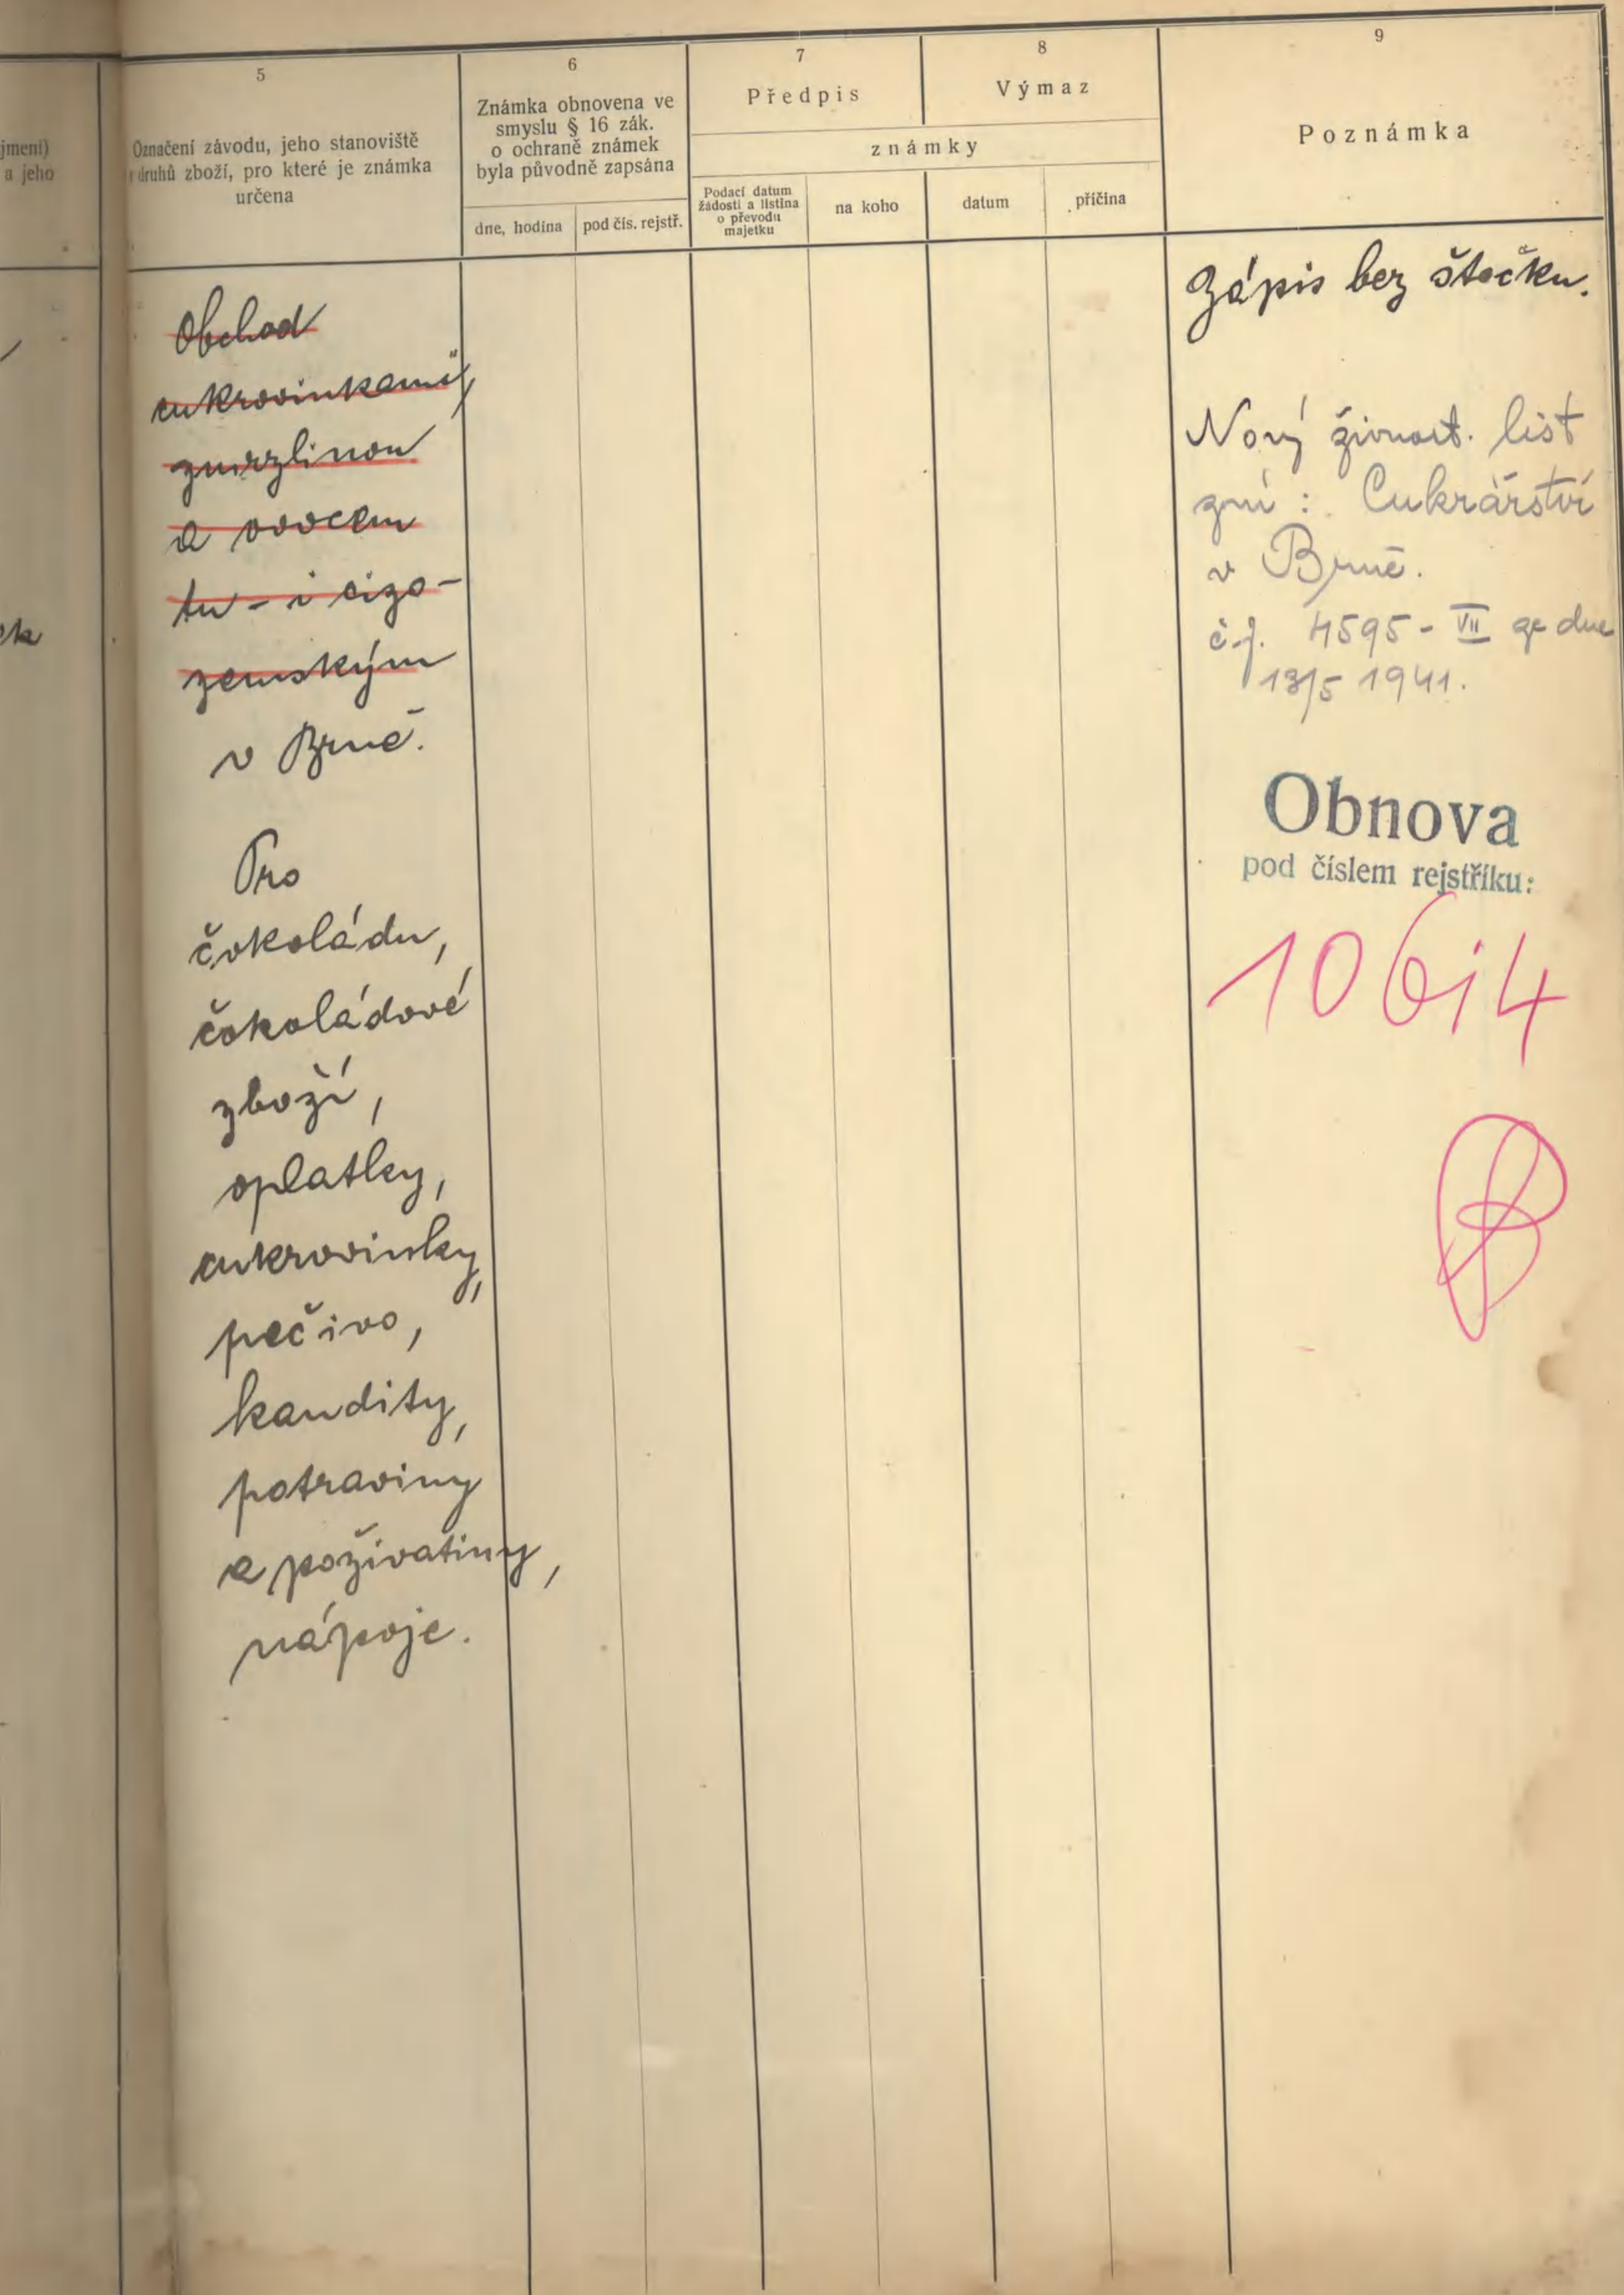 jmení)
a jeho
5
Označení závodu, jeho stanoviště
druhů zboží, pro které je známka
určena
6
Známka obnovena ve
smyslu § 16 zák.
o ochraně známek
byla původně zapsána
dne, hodina
pod čís. rejstř.
7
Předpis
8
Výmaz
známky
Podací datum
žádosti a listina
o převodu
majetku
na koho
datum
příčina
9
Poznámka
Obchod
cukrovinkami,
zmrzlinou
a ovocem
tu- i cizo-
zemským
v Brně.
Pro
čokoládu,
čokoládové
zboží,
oplatky,
cukrovinky,
pečivo,
kandity,
potraviny
a poživatiny,
nápoje.
Zápis bez štočku.
Nový živnost. list
zní: Cukrářství
v Brně.
č.j. 4595-VII ze dne
13/5 1941.
Obnova
pod číslem rejstříku:
10614